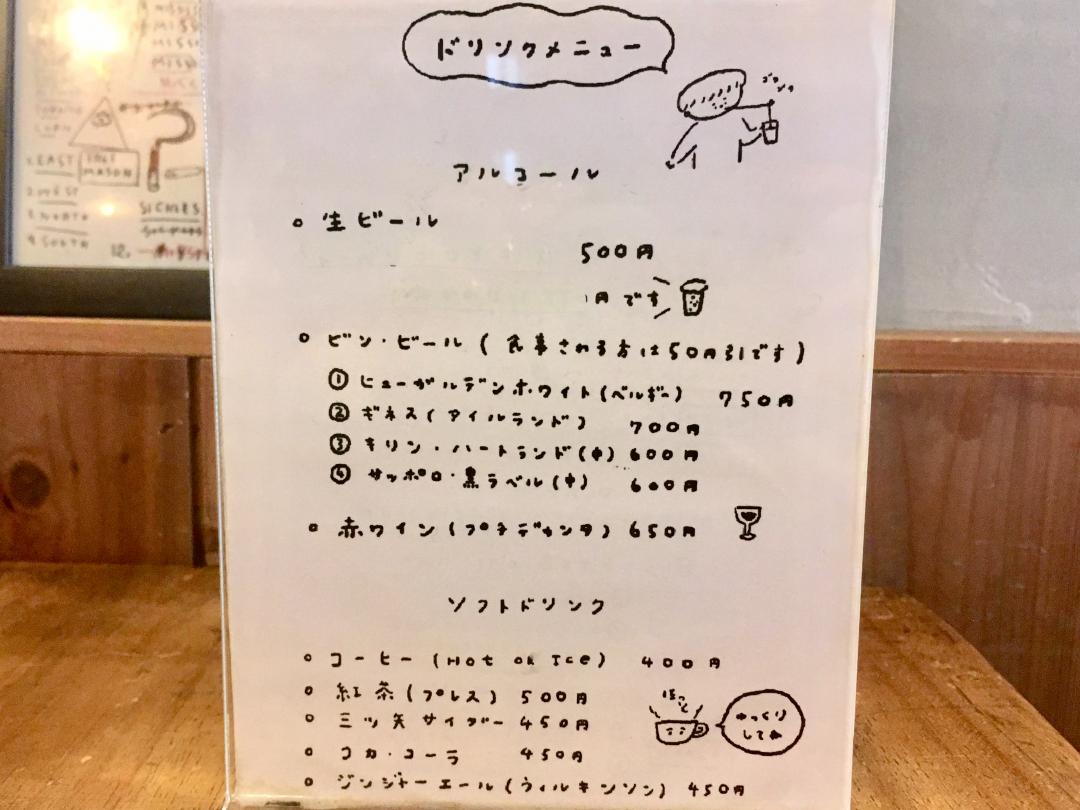 ドリンクメニュー
ゴクゴク
アルコール
生ビール
500円
円です
ビン・ビール (食事される方は50円引です)
① ヒューガルデンホワイト(ベルギー) 750円
② ギネス(アイルランド) 700円
③ キリン・ハートランド(中) 600円
④ サッポロ・黒ラベル(中) 600円
赤ワイン(プチデカンタ) 650円
ソフトドリンク
コーヒー (Hot or Ice) 400円
紅茶(プレス) 500円
三ツ矢サイダー 450円
コカ・コーラ 450円
ジンジャーエール(ウィルキンソン) 450円
ほっと
ゆっくり
してね
EAST
MASON
SICKLES